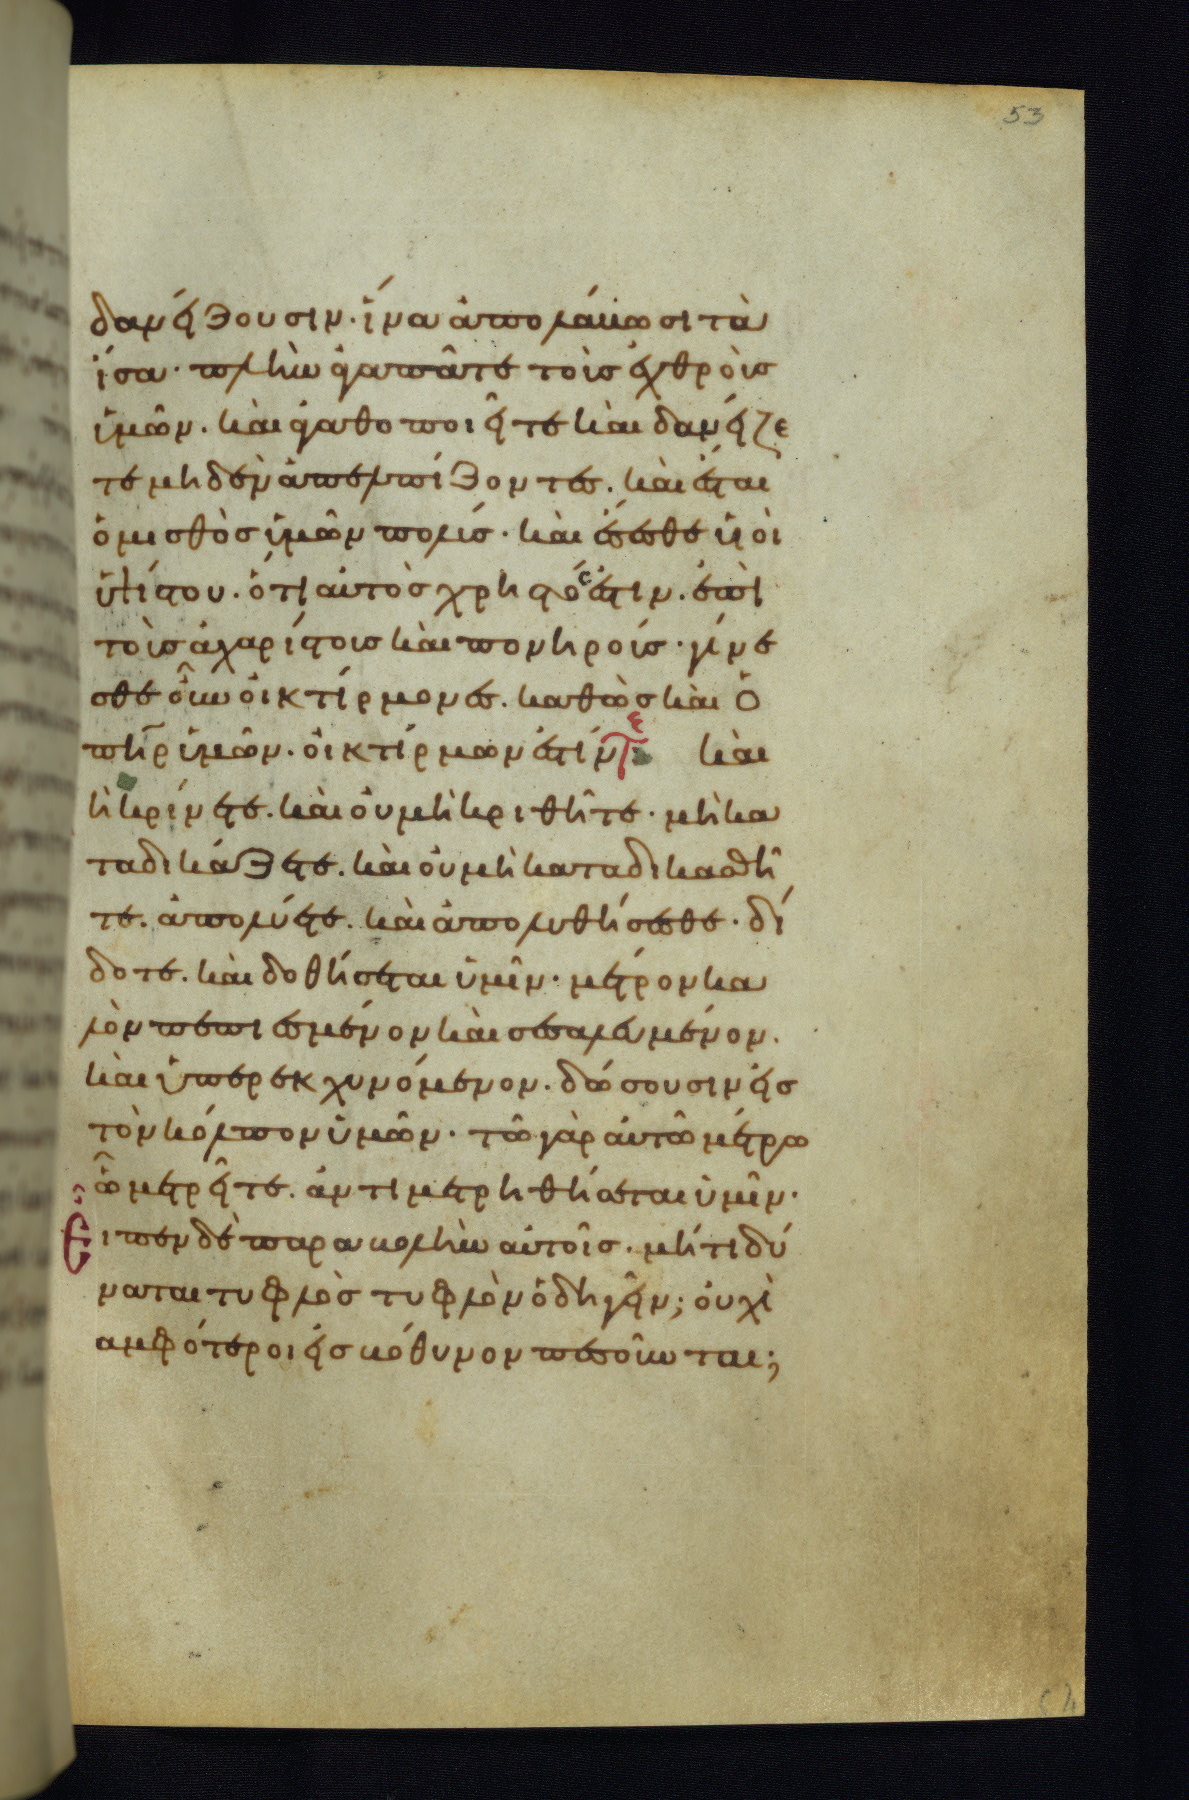 53
δανείζουσιν· ἵνα ἀπολάβωσι τὰ
ἴσα· πλὴν ἀγαπᾶτε τοὺς ἐχθροὺς
ὑμῶν. καὶ ἀγαθοποιεῖτε καὶ δανείζε
τε μηδὲν ἀπελπίζοντες. καὶ ἔσται
ὁ μισθὸς ὑμῶν πολύς· καὶ ἔσεσθε υἱοὶ
ὑψίστου. ὅτι αὐτὸς χρηστός ἐστιν. ἐπὶ
τοὺς ἀχαρίστους καὶ πονηρούς· γίνε
σθε οὖν οἰκτίρμονες. καθὼς καὶ ὁ
πηρ ὑμῶν. οἰκτίρμων ἐστίν τε καὶ
μὴ κρίνετε. καὶ οὐ μὴ κριθῆτε· μὴ κα
ταδικάζετε. καὶ οὐ μὴ καταδικασθῆ
τε. ἀπολύετε. καὶ ἀπολυθήσεσθε· δί
δοτε. καὶ δοθήσεται ὑμῖν· μέτρον κα
λὸν πεπιεσμένον καὶ σεσαλευμένον.
καὶ ὑπερεκχυνόμενον. δώσουσιν εἰς
τὸν κόλπον ὑμῶν· τῶ γὰρ αὐτῶ μέτρω
ὧ μετρεῖτε. ἀντιμετρηθήσεται ὑμῖν·
Εἶπεν δὲ παραβολὴν αὐτοῖς. μήτι δύ
ναται τυφλὸς τυφλὸν ὁδηγεῖν; οὐχὶ
αμφότεροι εἰς βόθυνον πεσοῦνται;